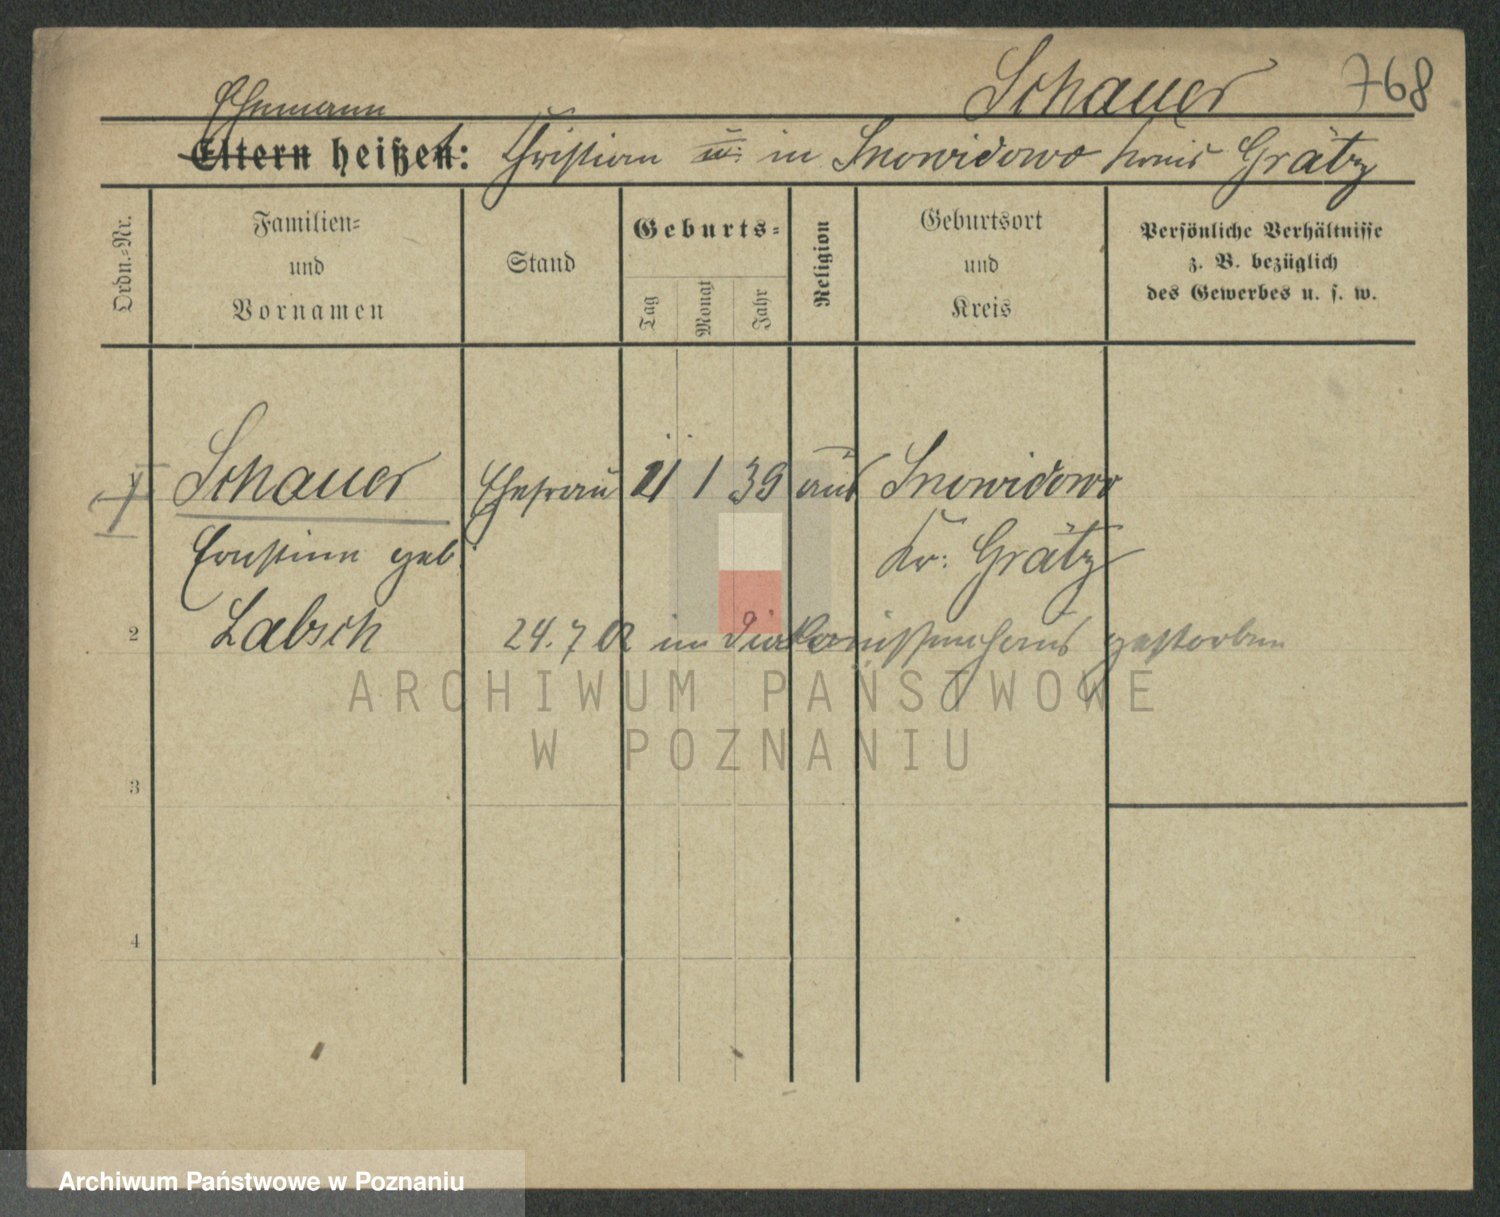 Schauer 768
Ehemann
Eltern heißen: Christian u: in Snowidowo Kreis Grätz
Ordn.-Nr.
Familien-
und
Vornamen
Stand
Geburts-
Tag
Monat
Jahr
Religion
Geburtsort
und
Kreis
Persönliche Verhältnisse
z. B. bezüglich
des Gewerbes u. s. w.
Schauer Ehefrau 1 39 Snowidowo
Ernstine geb. Kr: Grätz
2 Labsch 24.7 02 im Diakonissenhaus gestorben
ARCHIWUM PAŃSTWOWE
W POZNANIU
3
4
Archiwum Państwowe w Poznaniu